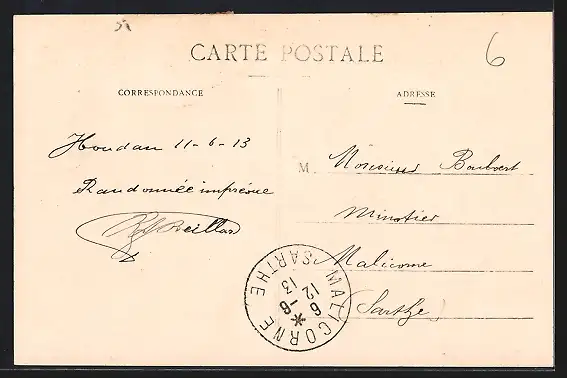 6
CARTE POSTALE
CORRESPONDANCE
ADRESSE
Houdan 11-6-13
Randonnée imprévue
M. Monsieur
Minotier
Malicorne
(Sarthe)
MALICORNE
SARTHE
6-6
12
13